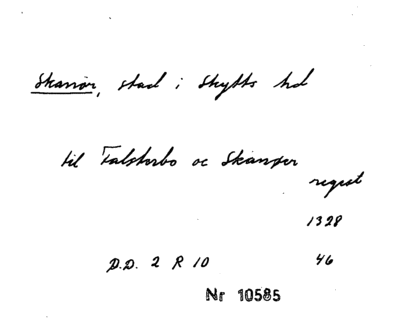 Skanör, stad i Skytts hd
til Falsterbo oc Skanøer
regest
1328
D.D. 2 R 10 46
Nr 10585